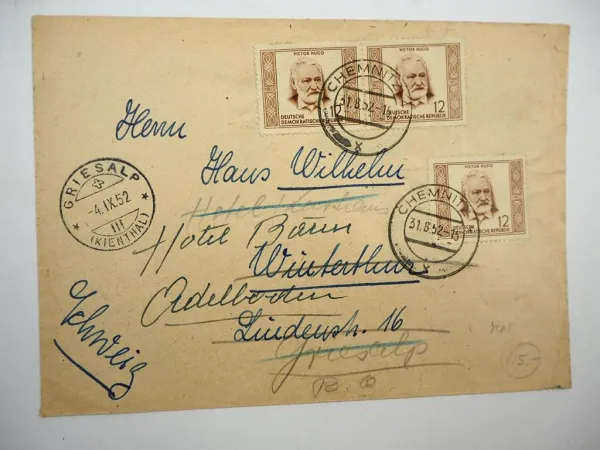 VICTOR HUGO
DEUTSCHE
DEMOKRATISCHE
12
VICTOR HUGO
12
DEUTSCHE
DEMOKRATISCHE REPUBLIK
CHEMNITZ
31.8.52-15
x
VICTOR HUGO
12
DEUTSCHE
DEMOKRATISCHE REPUBLIK
CHEMNITZ
31.8.52-15
x
GRIESALP
-4.IX.52
III
(KIENTHAL)
Herrn
Hans Wilhelm
Hotel
Hotel Bären
Winterthur
Adelboden
Lindenstr. 16
Griesalp
B. O
Schweiz
15.-